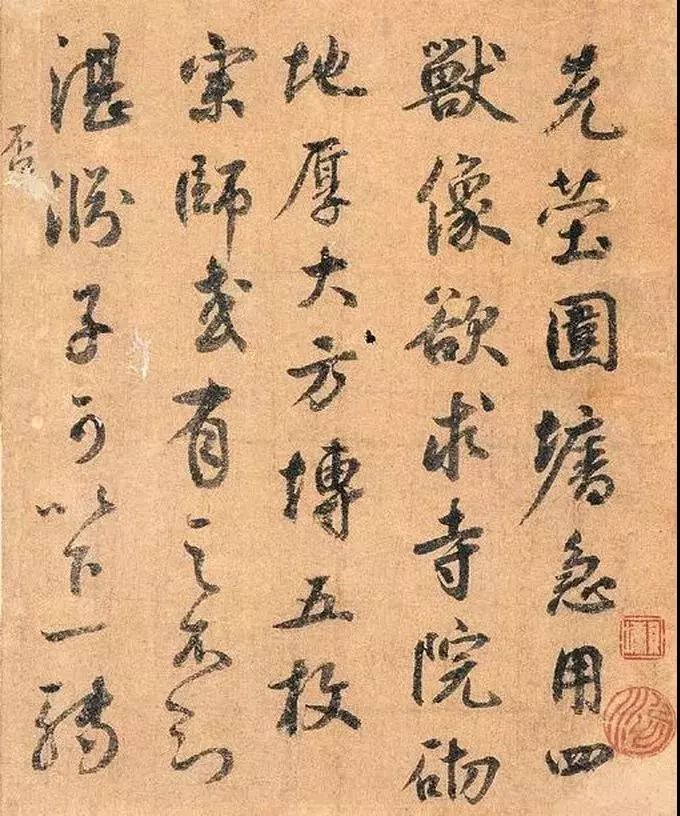 先塋圍墻急用四
獸像欲求寺院砌
地厚大方塼五枚
師或有之不則
湛淵子可以下一轉
否